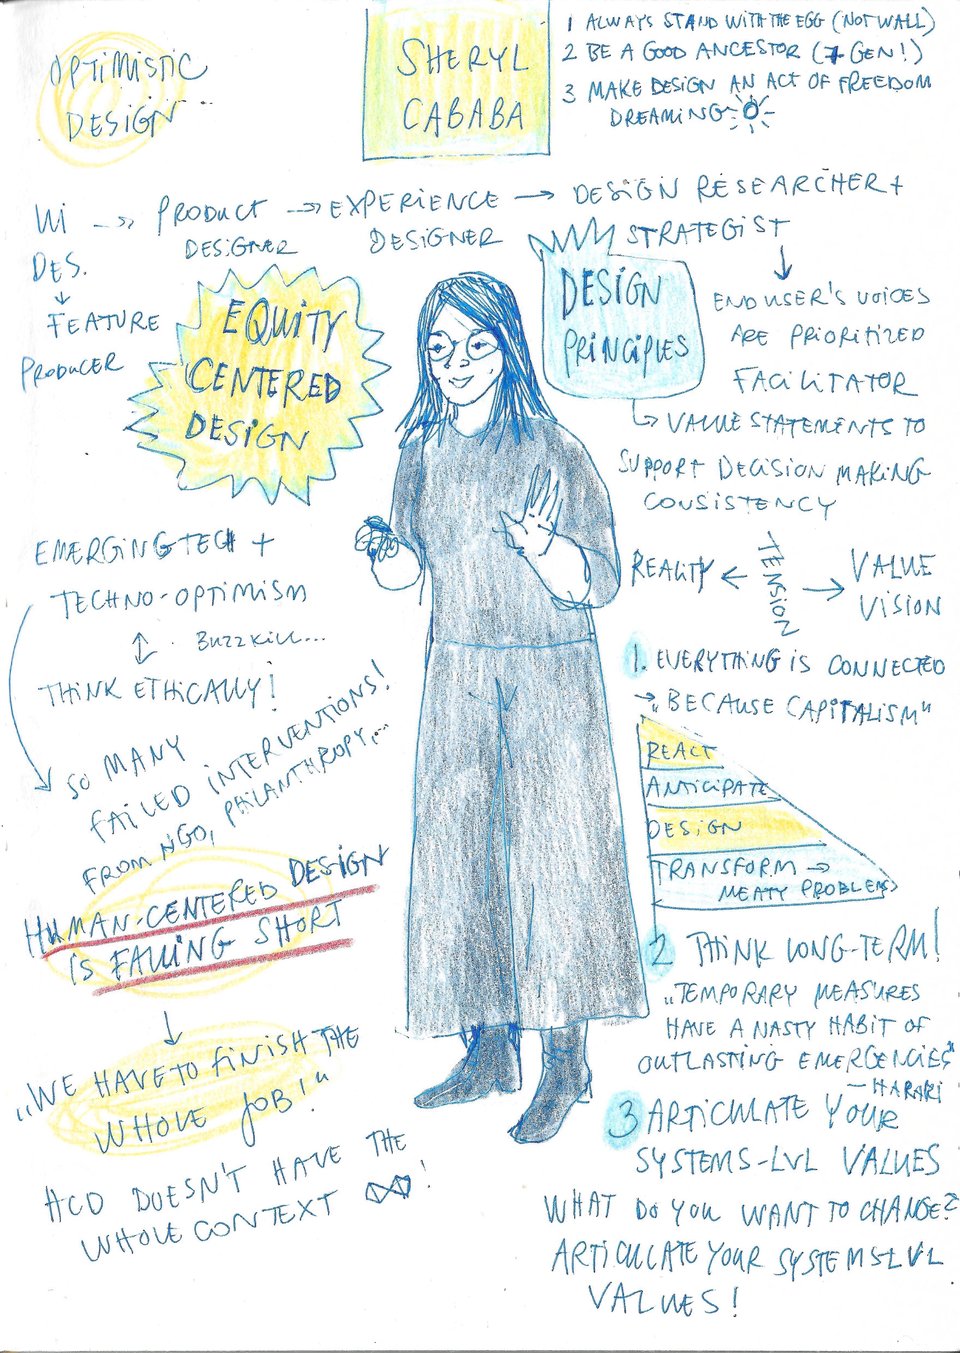 OPTIMISTIC
DESIGN
SHERYL
CABABA
1 ALWAYS STAND WITH THE EGG (NOT WALL)
2 BE A GOOD ANCESTOR (7 GEN!)
3 MAKE DESIGN AN ACT OF FREEDOM
DREAMING
UI → PRODUCT → EXPERIENCE → DESIGN RESEARCHER +
DES. DESIGNER DESIGNER STRATEGIST
↓
FEATURE
PRODUCER
↓
END USER'S VOICES
ARE PRIORITIZED
FACILITATOR
EQUITY
CENTERED
DESIGN
DESIGN
PRINCIPLES
↳ VALUE STATEMENTS TO
SUPPORT DECISION MAKING
CONSISTENCY
REALITY ← TENSION → VALUE
VISION
EMERGING TECH +
TECHNO-OPTIMISM
↕ BUZZKILL...
THINK ETHICALLY!
SO MANY
FAILED INTERVENTIONS!
FROM NGO, PHILANTHROPY,...
HUMAN-CENTERED DESIGN
IS FALLING SHORT
↓
„WE HAVE TO FINISH THE
WHOLE JOB!"
HCD DOESN'T HAVE THE
WHOLE CONTEXT !
1. EVERYTHING IS CONNECTED
→ „BECAUSE CAPITALISM"
REACT
ANTICIPATE
DESIGN
TRANSFORM →
MEATY PROBLEMS
2 THINK LONG-TERM!
„TEMPORARY MEASURES
HAVE A NASTY HABIT OF
OUTLASTING EMERGENCIES"
— HARARI
3 ARTICULATE YOUR
SYSTEMS-LVL VALUES
WHAT DO YOU WANT TO CHANGE?
ARTICULATE YOUR SYSTEMS-LVL
VALUES!